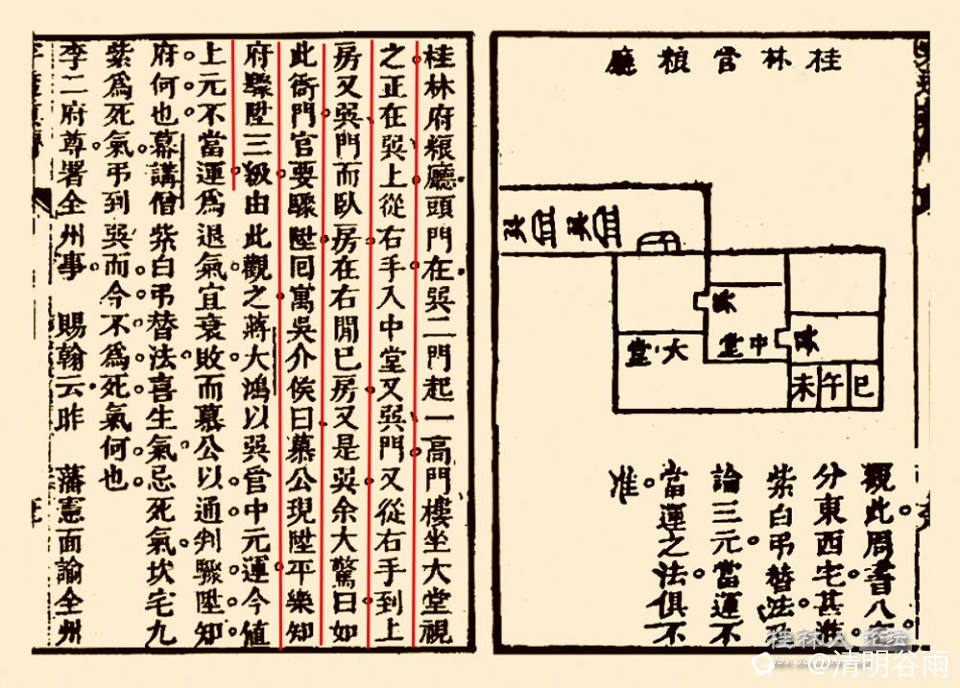 桂林官粮廳
巽
巽
大堂
中堂
未
午
巳
觀此周書八
分東西宅甚准
紫白弔替法
論三元當運不
當運之法俱不
准
桂林府粮廳頭門在巽二門起一高門樓坐大堂視
之正在巽上從右手入中堂又巽門又從右手到上
房又巽門而臥房在右間巳房又是巽余大驚曰如
此衙門官要驟陞囘寓吳介侯曰慕公現陞平樂知
府驟陞三級由此觀之蔣大鴻以巽管中元運今值
上元不當運爲退氣宜衰敗而慕公以通判驟陞知
府何也幕講僧紫白弔替法喜生氣忌死氣坎宅九
紫爲死氣弔到巽而今不爲死氣何也
李二府尊署全州事 賜翰云昨 藩憲面諭全州
桂林人
@清明谷雨